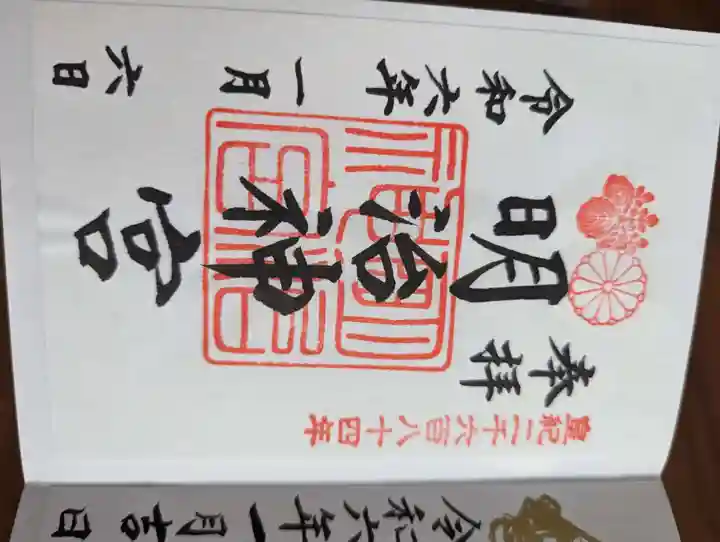 皇紀二千六百八十四年
奉拝
明治神宮
令和六年一月六日
明治神宮
令和六年一月吉日